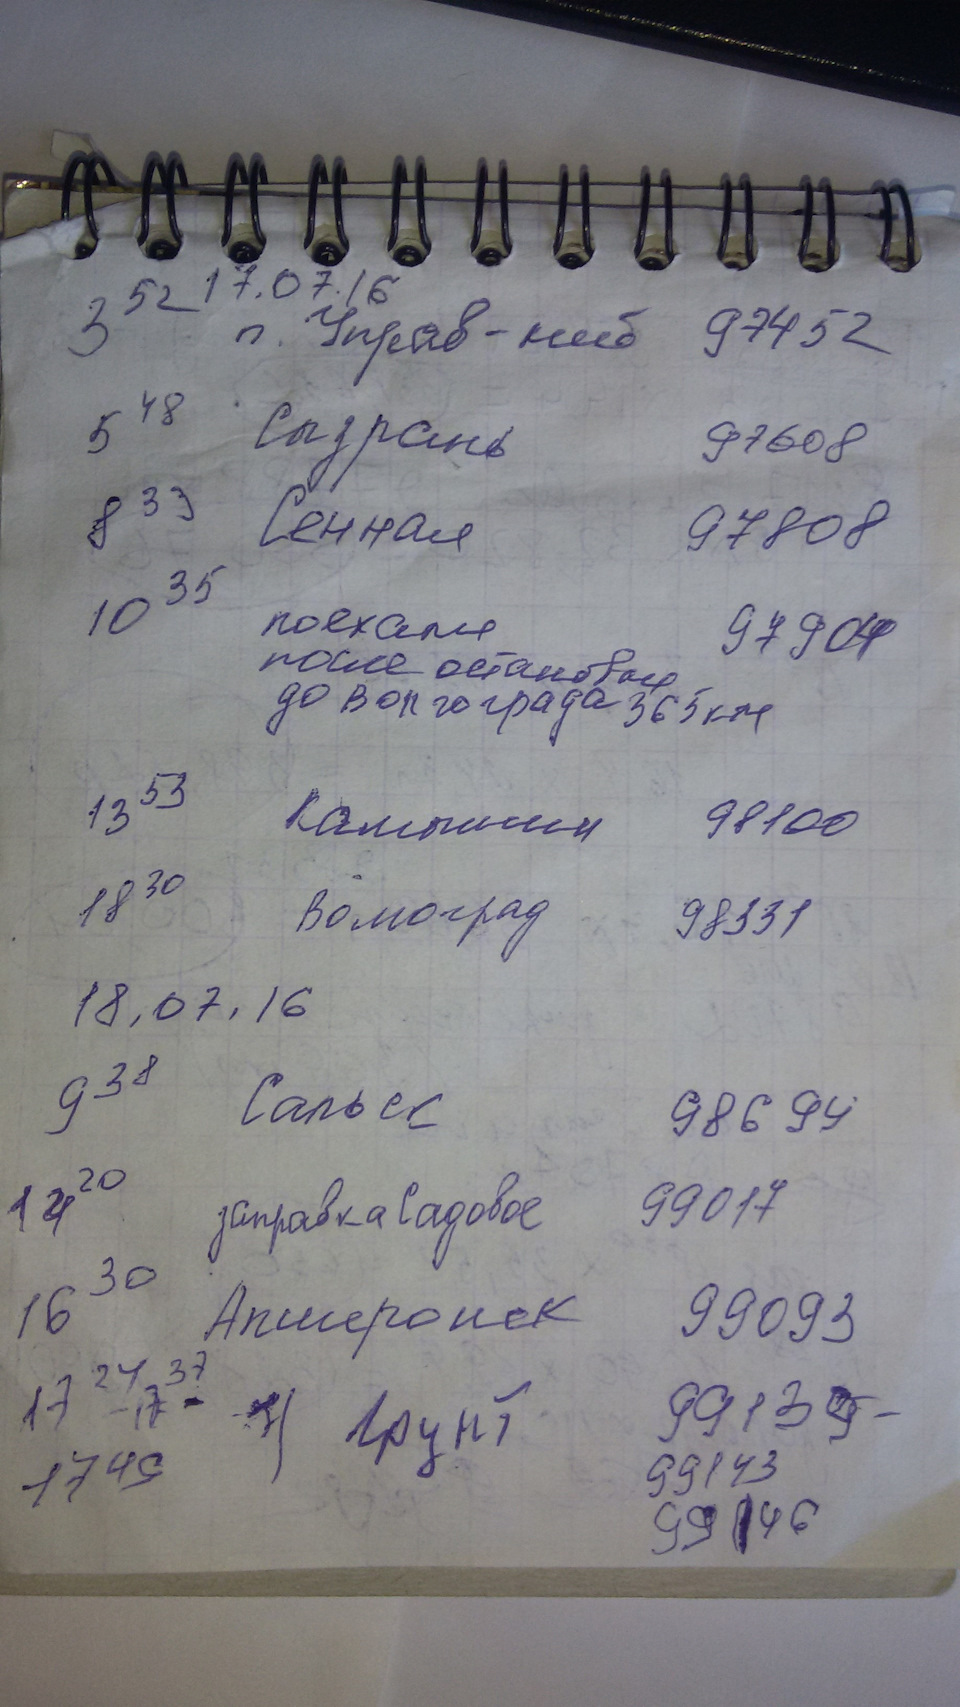 17.07.16
3 52 п. Управ-ний 97452
5 48 Сызрань 97608
8 33 Сенная 97808
10 35 поехали 97904
после остановки
до Волгограда 365 км
13 53 Камышин 98100
18 30 Волгоград 98331
18.07.16
9 38 Сальск 98694
14 20 заправка Садовое 99017
16 30 Апшеронск 99093
17 24 - 17 37 - Грунт 99139-
17 45 99143
99146